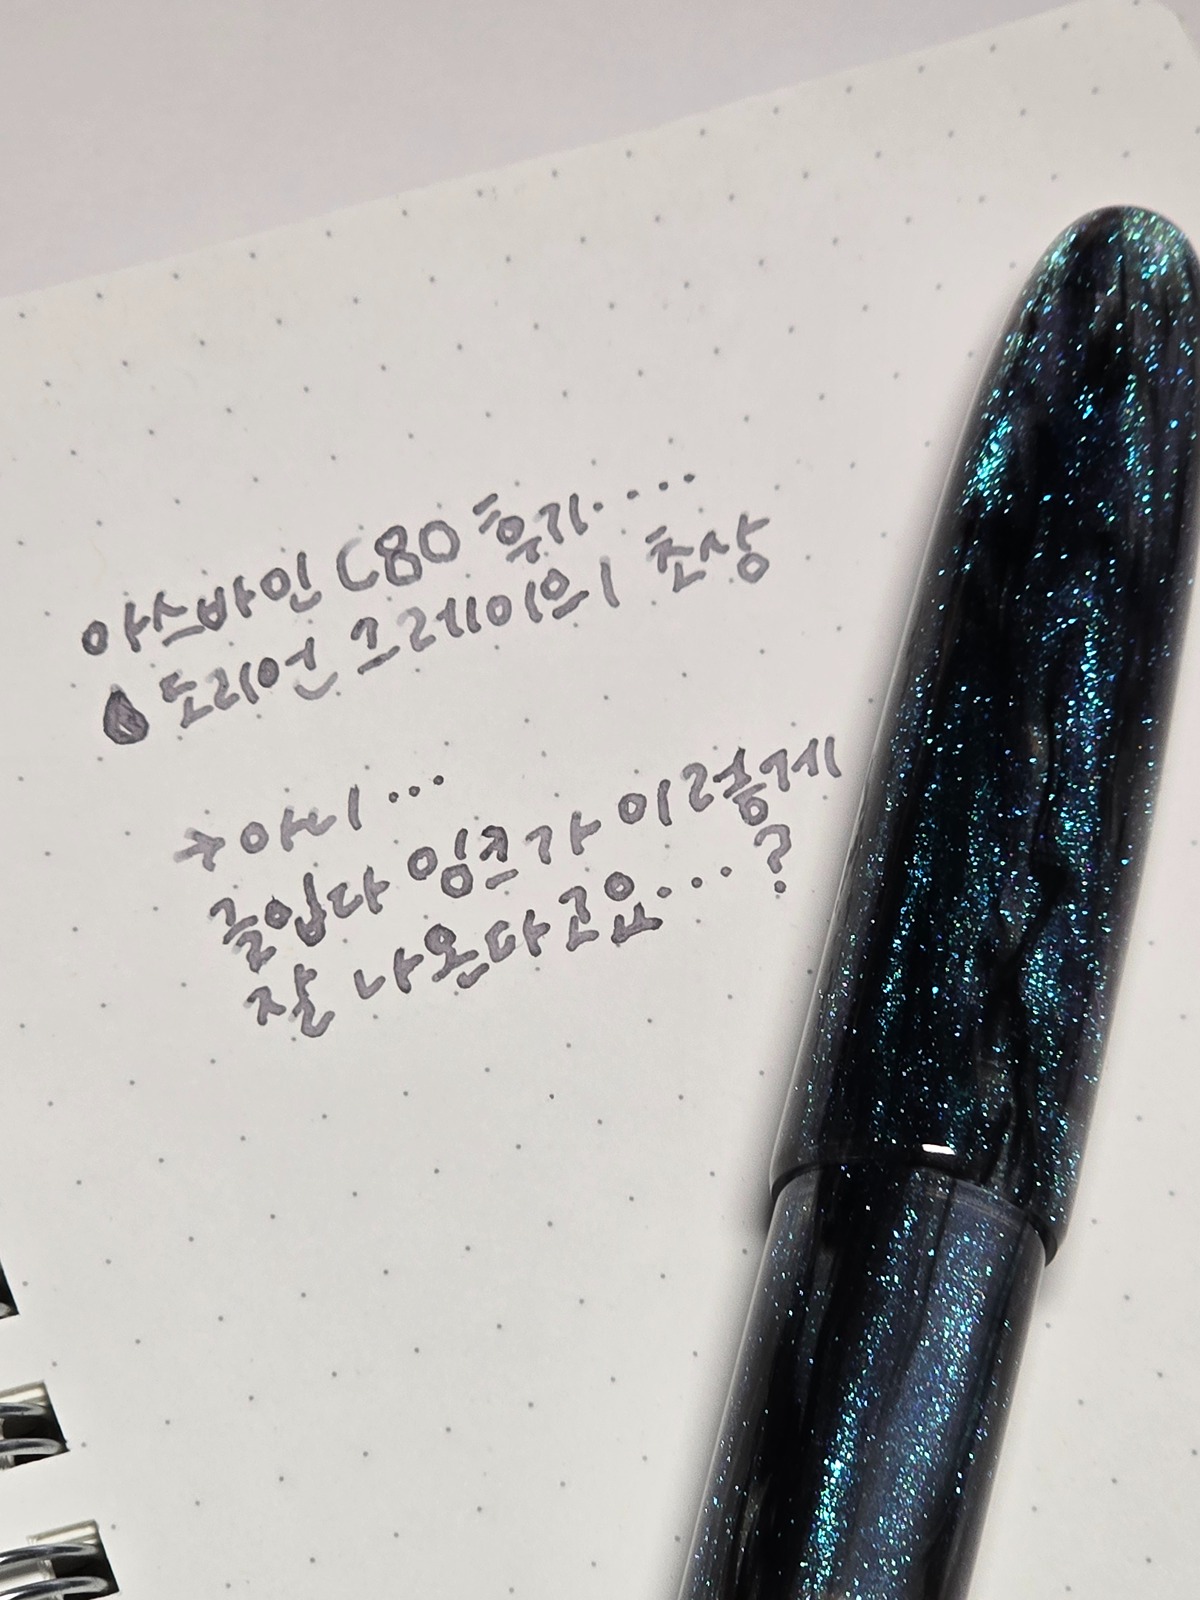 아스바인 C80 후기....
도리언 그레이의 초상
→ 아니...
글입다 잉크가 이렇게
잘 나온다고요...?